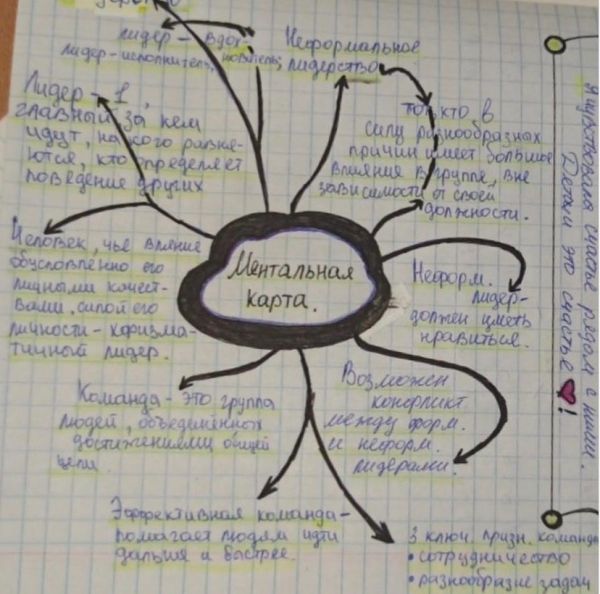 лидер - вдох-
лидер-исполнитель, новитель;
Неформальное
лидерство
тот, кто в
силу разнообразных
причин имеет большое
влияние в группе, вне
зависимости от своей
должности.
Лидер - 1,
главный, за кем
идут, на кого равня-
ются, кто определяет
поведение других
Человек, чье влияние
обусловленно его
личными качест-
вами, силой его
личности - харизма-
тичный лидер.
Ментальная
карта.
Неформ.
лидер-
должен уметь
нравиться.
Возможен
конфликт
между форм.
и неформ.
лидерами.
Команда - это группа
людей, объеденённых
достижениями общей
цели.
Эффективная команда -
помогает людям идти
дальше и быстрее.
3 ключ. призн. команды
• сотрудничество
• разнообразие задач
счастье рядом с ними.
Детки это счастье!